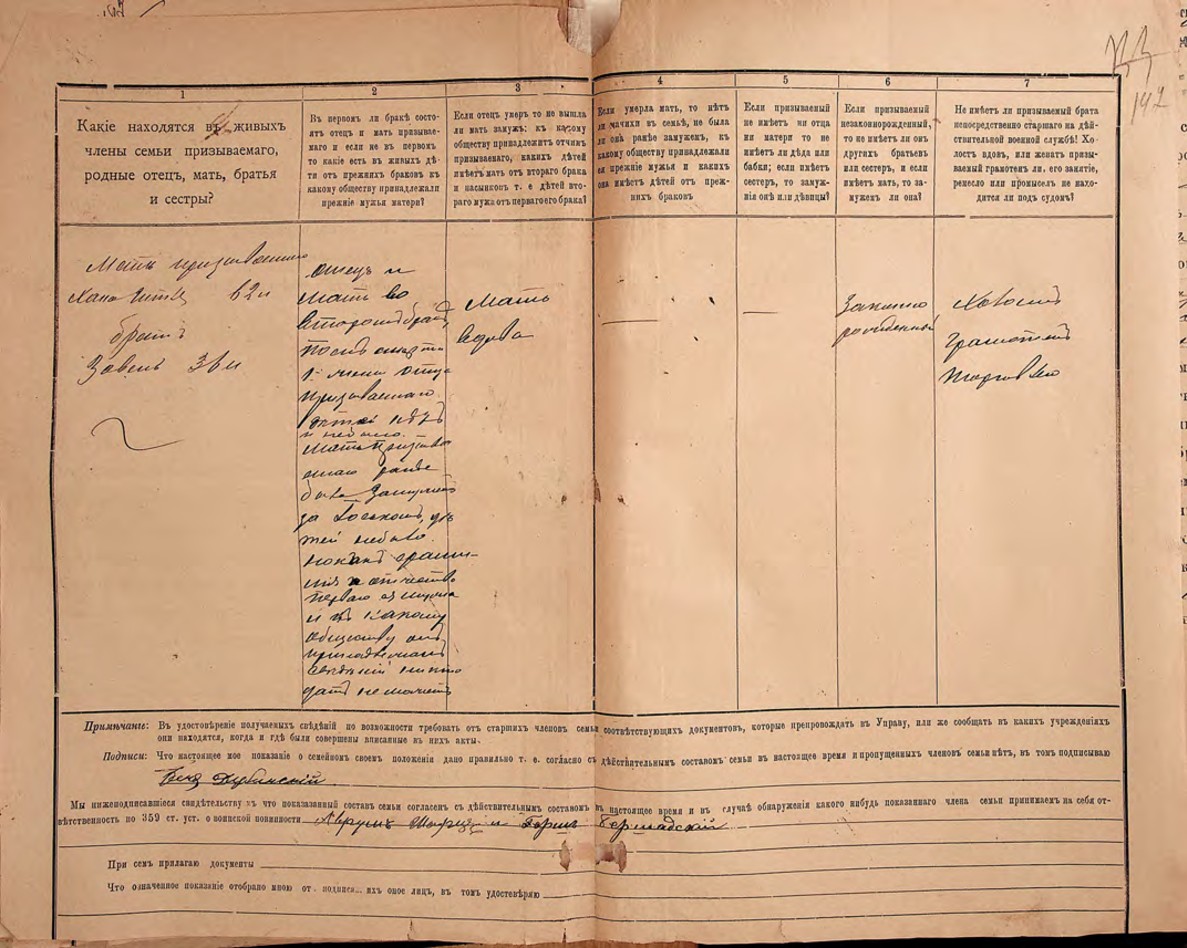 1
2
3
4
5
6
7
192
Какіе находятся въ живыхъ
члены семьи призываемаго,
родные отецъ, мать, братья
и сестры?
Въ первомъ ли бракѣ состо-
ятъ отецъ и мать призывае-
маго и если не въ первомъ
то какіе есть въ живыхъ дѣ-
ти отъ прежнихъ браковъ къ
какому обществу принадлежали
прежніе мужья матери?
Если отецъ умеръ то не вышла
ли мать замужъ: къ какому
обществу принадлежитъ отчимъ
призываемаго, какихъ дѣтей
имѣетъ мать отъ втораго брака
и насынковъ т. е. дѣтей вто-
раго мужа отъ перваго его брака?
Если умерла мать, то нѣтъ
ли мачихи въ семьѣ, не была
ли она ранѣе замужемъ, къ
какому обществу принадлежали
ея прежніе мужья и какихъ
она имѣетъ дѣтей отъ преж-
нихъ браковъ
Если призываемый
не имѣетъ ни отца
ни матери то не
имѣетъ ли дѣда или
бабки; если имѣетъ
сестеръ, то замуж-
нія онѣ или дѣвицы?
Если призываемый
незаконнорожденный,
то не имѣетъ ли онъ
другихъ братьевъ
или сестеръ, и если
имѣетъ мать, то за-
мужемъ ли она?
Не имѣетъ ли призываемый брата
непосредственно старшаго на дѣй-
ствительной военной службѣ? Хо-
лостъ вдовъ, или женатъ призы-
ваемый грамотенъ ли, его занятіе,
ремесло или промыселъ не нахо-
дится ли подъ судомъ?
Мать
Хана 62 л
братъ
36 л
отецъ и
мать во
второмъ бракѣ,
послѣ смерти
1й жены отца
призываемаго
дѣтей нѣтъ
и не было.
Мать призыва
емаго ранѣе
была замужемъ
за дѣ
тей не было.
и отчество
перваго ея мужа
и къ какому
обществу онъ
принадлежалъ
свѣдѣній никто
дать не можетъ
Мать
вдова
Законно
рожденный
Холостъ
Грамотенъ
Торговля
Примѣчаніе: Въ удостовѣреніе получаемыхъ свѣдѣній по возможности требовать отъ старшихъ членовъ семьи соотвѣтствующихъ документовъ, которые препровождать въ Управу, или же сообщать въ какихъ учрежденіяхъ
они находятся, когда и гдѣ были совершены вписанные въ нихъ акты.
Подписи: Что настоящее мое показаніе о семейномъ своемъ положеніи дано правильно т. е. согласно съ дѣйствительнымъ составомъ семьи въ настоящее время и пропущенныхъ членовъ семьи нѣтъ, въ томъ подписываю
Дубинскій
Мы нижеподписавшіеся свидѣтельству въ что показанный составъ семьи согласенъ съ дѣйствительнымъ составомъ въ настоящее время и въ случаѣ обнаруженія какого нибудь показаннаго члена семьи принимаемъ на себя от-
вѣтственность по 359 ст. уст. о воинской повинности Аврумъ и Гершъ Бершадскій
При семъ прилагаю документы
Что означенное показаніе отобрано мною от подписа ихъ оное лицъ, въ томъ удостовѣряю